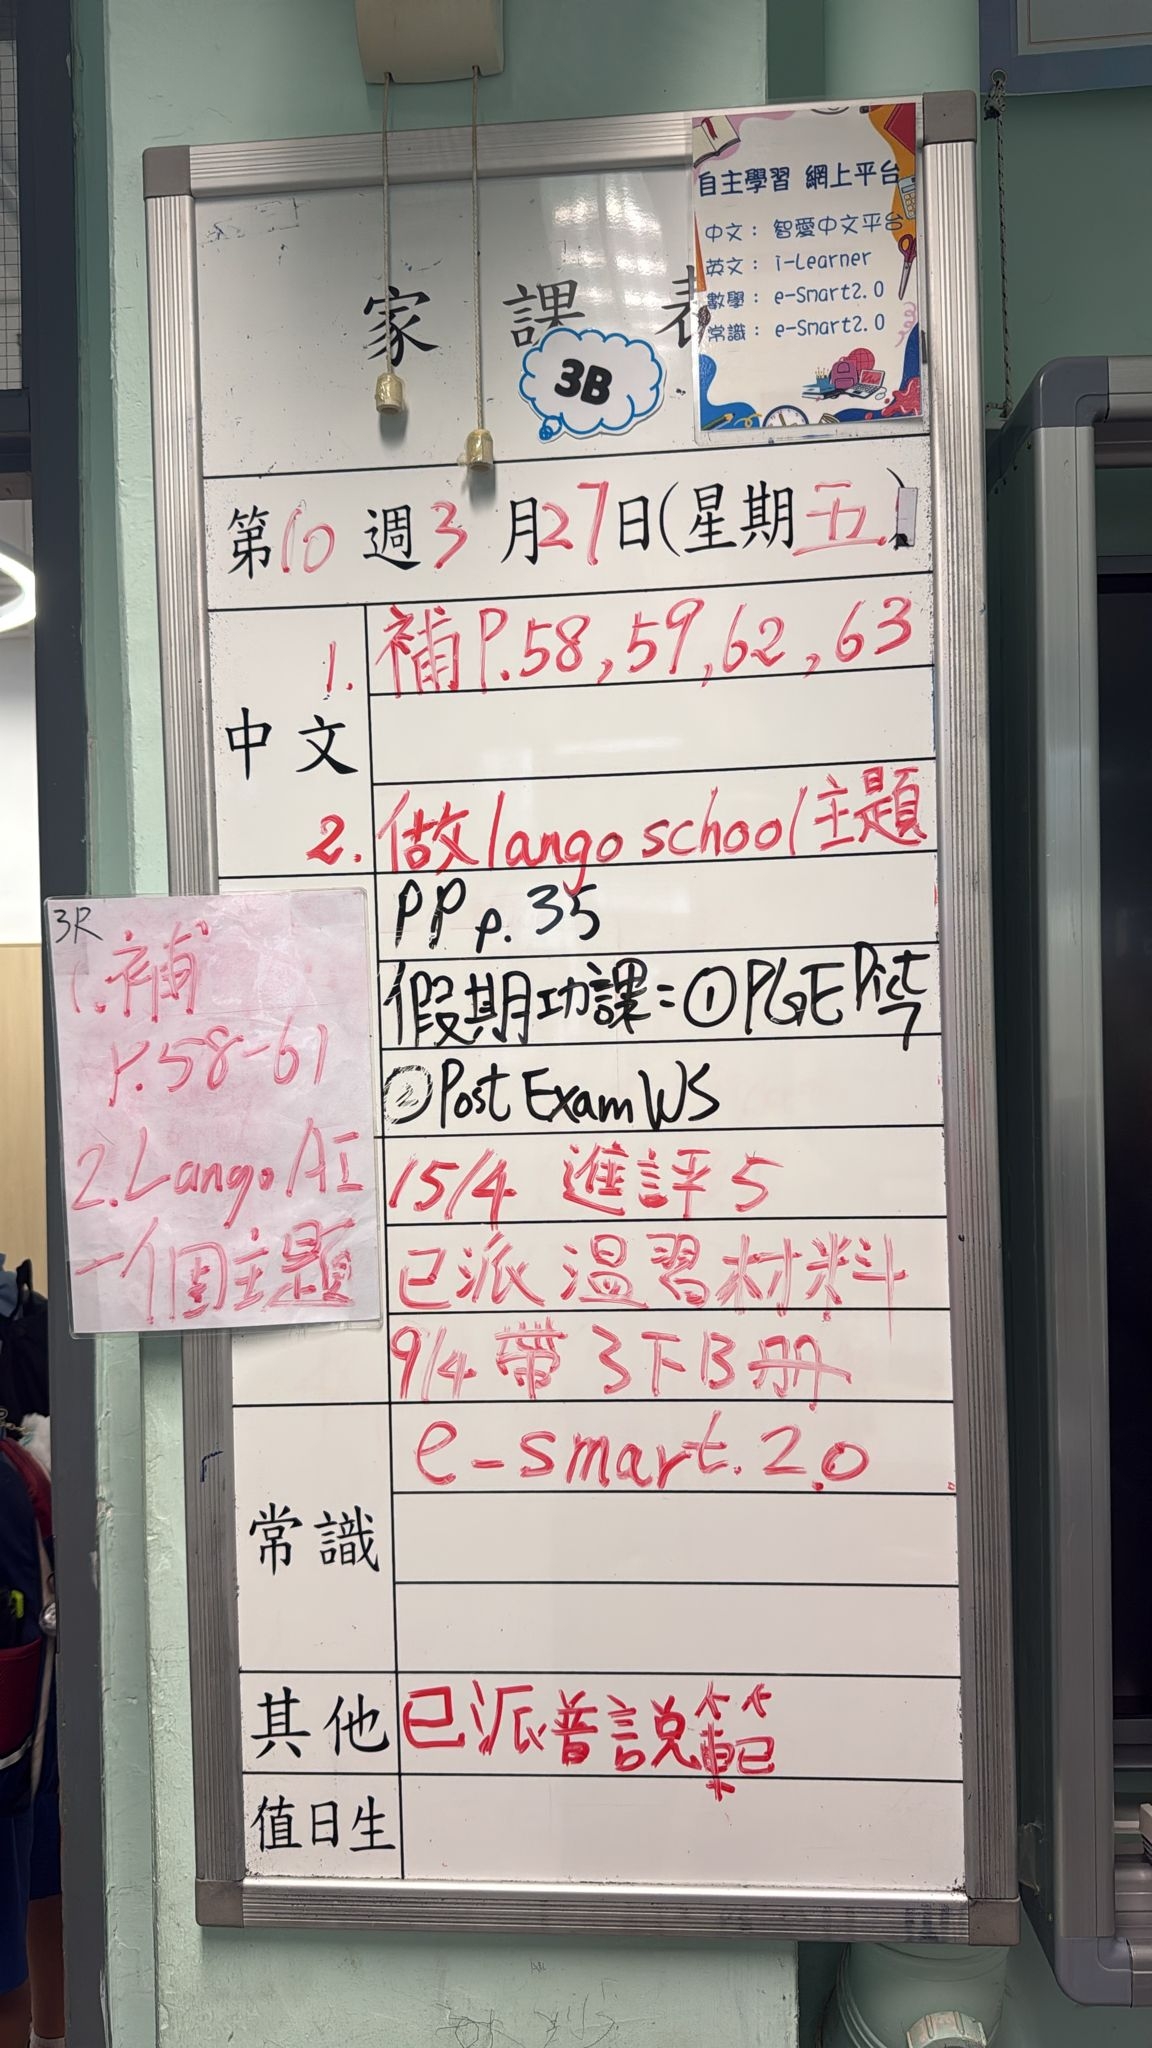 自主學習 網上平台
中文： 智愛中文平台
英文： i-Learner
數學： e-Smart2.0
常識： e-Smart2.0
家課表
3B
第10週3月27日(星期五)
中文
1. 補P.58,59,62,63
2. 做lango school主題
PP p.35
假期功課=①PGE Pict
②Post Exam WS
15/4 進評5
已派溫習材料
9/4帶3下B冊
常識
e-smart.2.0
其他
已派普說範
值日生
3R
1.補
P.58-61
2.Lango AI
一個主題